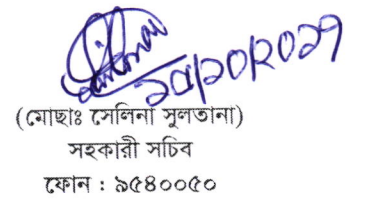 ১৫/১০/২০১৭
(মোছাঃ সেলিনা সুলতানা)
সহকারী সচিব
ফোন : ৯৫৪০০৫০